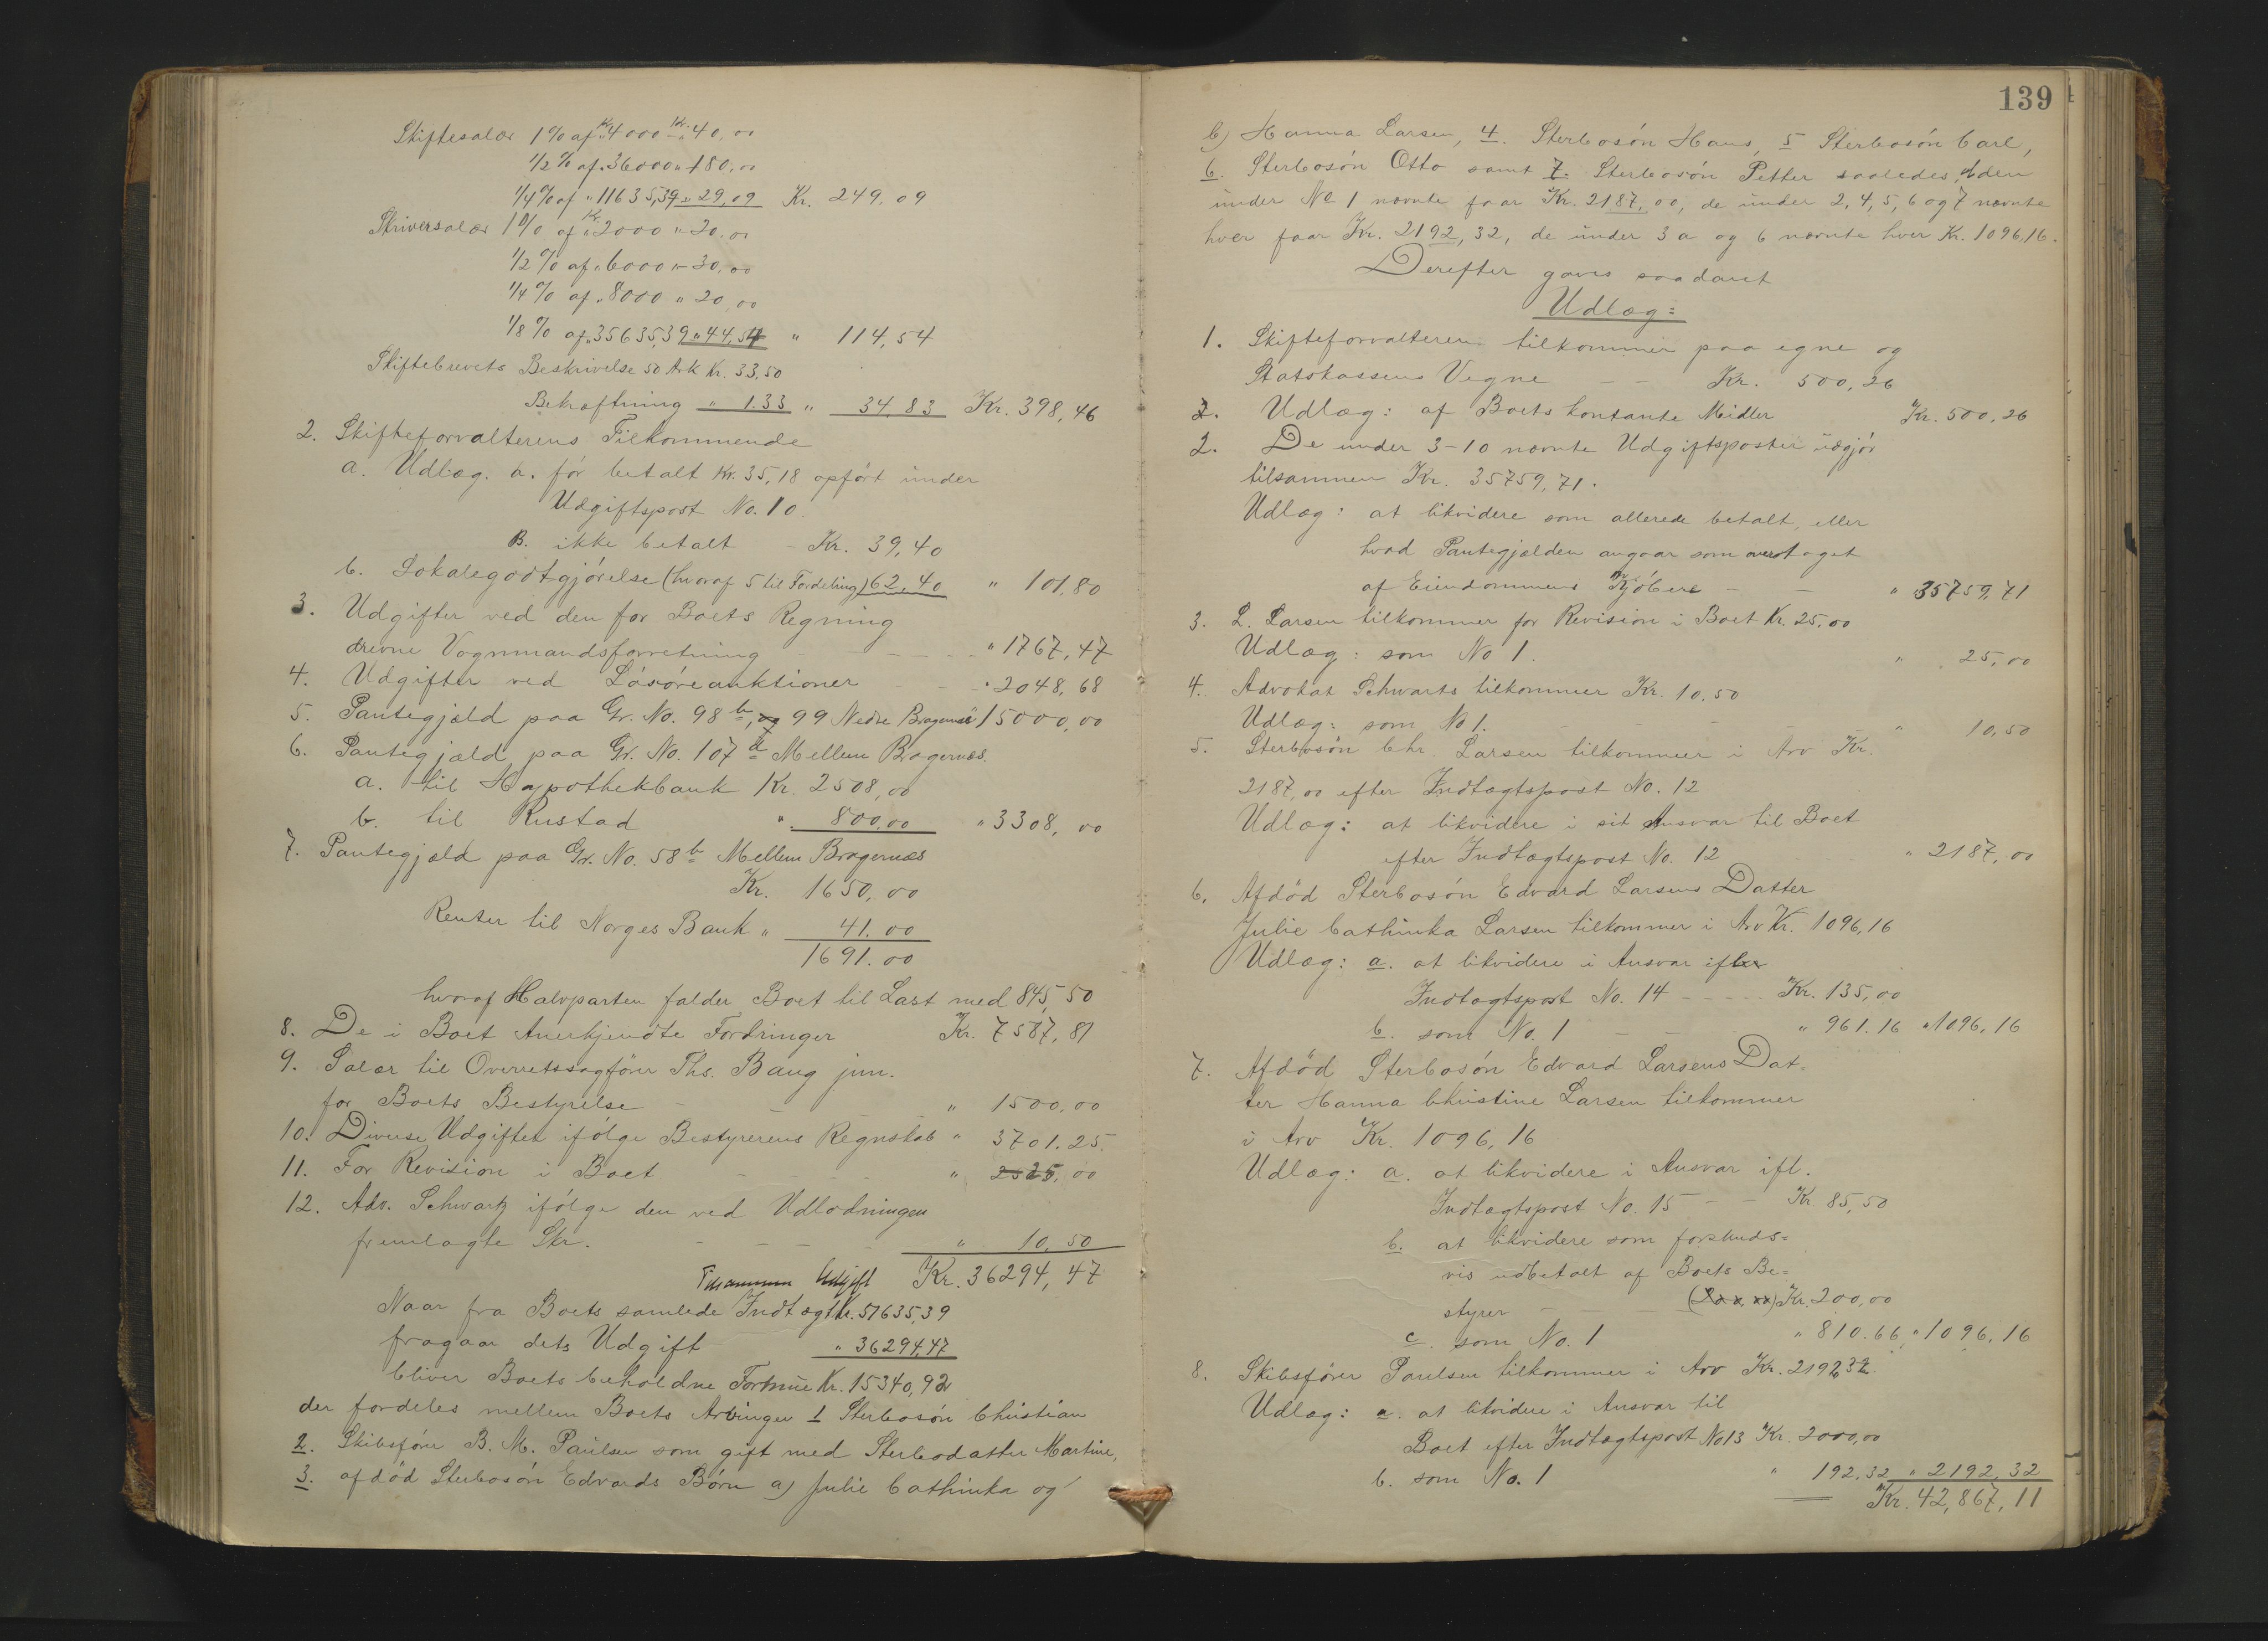 Skiftesalær 1% af Kr. 4000 - Kr. 40,00
1/2 % af " 36000 " 180,00
1/4 % af " 11635,39 " 29,09 Kr. 249.09
Skriversalær 1% af Kr. 2000 " 20.00
1/2 % af " 6000 " 30,00
1/4 % af " 8000 " 20,00
1/8 % af " 35635,39 " 44,54 " 114,54
Skiftebrevets Beskrivelse 50 Ark Kr. 33,50
Bekræftning " 1.33 " 34.83 Kr. 398,46
2. Skifteforvalterens Tilkommende
a. Udlæg. a. før betalt Kr. 35,18 opført under
Udgiftspost No. 10.
B. ikke betalt - Kr. 39,40
b. Lokalegodtgjørelse (hvoraf 5 til Fordeling) 62.40 " 101,80
3. Udgifter ved den for Boets Regning
drevne Vognmandsforretning - - - - " 1767,47
4. Udgifter ved Løsøreauktioner - - " 2048,68
5. Pantegjæld paa Gr. No. 98 b, og 99 Nedre Bragernæs " 15000,00
6. Pantegjæld paa Gr. No. 107 d Mellem Bragernæs.
a. til Hypothekbank Kr. 2508,00
b. til Rustad " 800,00 " 3308,00
7. Pantegjæld paa Gr. No. 58 b Mellem Bragernæs
Kr. 1650,00
Renter til Norges Bank " 41.00
1691.00
hvoraf Halvparten falder Boet til Last med 845,50
8. De i Boet Anerkjendte Fordringer Kr. 7587,81
9. Salær til Overretssagfører Ths. Bang jun.
for Boets Bestyrelse - - - " 1500,00
10. Diverse Udgifter ifølge Bestyrerens Regnskab " 3701.25.
11. For Revision i Boet - - - " 25,00
12. Adv. Schwartz ifølge den ved Udlodningen
fremlagte Skr. - - - - " 10,50
Tilsammen Udgift Kr. 36294,47
Naar fra Boets samlede Indtægt Kr. 51635,39
fragaar dets Udgift " 36294,47
bliver Boets beholdne Formue Kr. 15340,92
der fordeles mellem Boets Arvinger 1 Sterbosøn Christian
2. Skibsfører B. M. Paulsen som gift med Sterbodatter Martine,
3. afdød Sterbosøn Edvards Børn a) Julie Cathinka og
139
b) Hanna Larsen, 4. Sterbosøn Hans, 5 Sterbosøn Carl,
6. Sterbosøn Otto samt 7. Sterbosøn Petter saaledes, den
under No 1 nævnte faar Kr. 2187,00, de under 2, 4, 5, 6 og 7 nævnte
hver faar Kr. 2192,32, de under 3 a og b nævnte hver Kr. 1096,16.
Derefter gaves saadant
Udlæg:
1. Skifteforvalteren tilkommer paa egne og
Statskassens Vegne - - Kr. 500,26
Udlæg: af Boets kontante Midler Kr. 500,26
2. De under 3-10 nævnte Udgiftsposter udgjør
tilsammen Kr. 35759,71.
Udlæg: at likvidere som allerede betalt, eller
hvad Pantegjælden angaar som overtaget
af Eiendommens Kjøbere - - " 35759,71
3. L. Larsen tilkommer for Revision i Boet Kr. 25.00
Udlæg: som No 1. " 25,00
4. Advokat Schwarts tilkommer Kr. 10.50
Udlæg: som No 1. - - - " 10,50
5. Sterbosøn Chr. Larsen tilkommer i Arv Kr.
2187,00 efter Indtægtspost No. 12
Udlæg: at likvidere i sit Ansvar til Boet
efter Indtægtspost No. 12 " 2187,00
6. Afdød Sterbosøn Edvard Larsens Datter
Julie Cathinka Larsen tilkommer i Arv Kr. 1096,16
Udlæg: a. at likvidere i Ansvar efter
Indtægtspost No. 14 - - - - Kr. 135,00
b. som No. 1 - - " 961.16 " 1096,16
7. Afdød Sterbosøn Edvard Larsens Dat=
ter Hanna Christine Larsen tilkommer
i Arv Kr. 1096,16
Udlæg: a. at likvidere i Ansvar ifl.
Indtægtspost No. 15 - - Kr 85,50
b. at likvidere som forskuds=
vis udbetalt af Boets Be=
styrer - - - Kr. 200,00
c. som No. 1 " 810.66 " 1096,16
8. Skibsfører Paulsen tilkommer i Arv Kr. 2192,32
Udlæg: a. at likvidere i Ansvar til
Boet efter Indtægtspost No 13 Kr. 2000,00
b. som No. 1 " 192.32 " 2192.32
Kr. 42,867,11